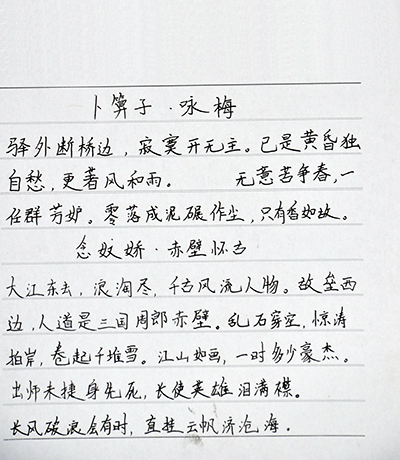 卜算子·咏梅
驿外断桥边，寂寞开无主。已是黄昏独
自愁，更著风和雨。 无意苦争春，一
任群芳妒。零落成泥碾作尘，只有香如故。
念奴娇·赤壁怀古
大江东去，浪淘尽，千古风流人物。故垒西
边，人道是三国周郎赤壁。乱石穿空，惊涛
拍岸，卷起千堆雪。江山如画，一时多少豪杰。
出师未捷身先死，长使英雄泪满襟。
长风破浪会有时，直挂云帆济沧海.